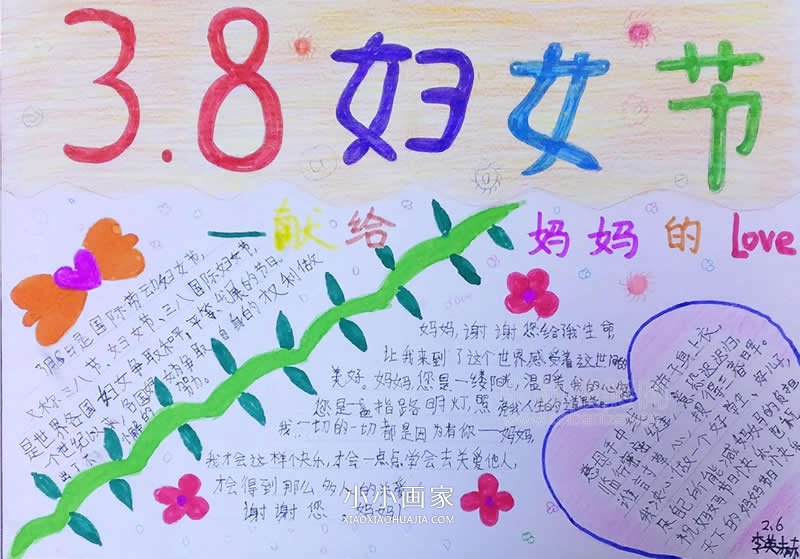 3.8 妇女节
—献给妈妈的Love
3月8日是国际劳动妇女节,
又称三八节、妇女节、三八国际妇女节,
是世界各国妇女争取和平、平等、发展的节日。
个世纪以来,各国 争取自身的权利做
出了不懈的努力。
妈妈,谢谢您给我生命
让我来到了这个世界感受着这世间的
美好。妈妈,您是一缕阳光,温暖我的心
您是一盏指路明灯,照 我人生的道路
我一切的一切都是因为有你——妈妈
我才会这样个快乐,才会一点点学会去关爱他人,
才会得到那么多人的
谢谢您,妈妈!
慈母手中线,游子身上衣,
临行密密缝,意恐迟迟归。
谁言寸草心,报得三春晖。
我决心做一个好学
祝妈妈节日快乐,也祝
天下的妈妈节日快乐
2.6
小小画家
XIAOXIAOHUAJIA.COM